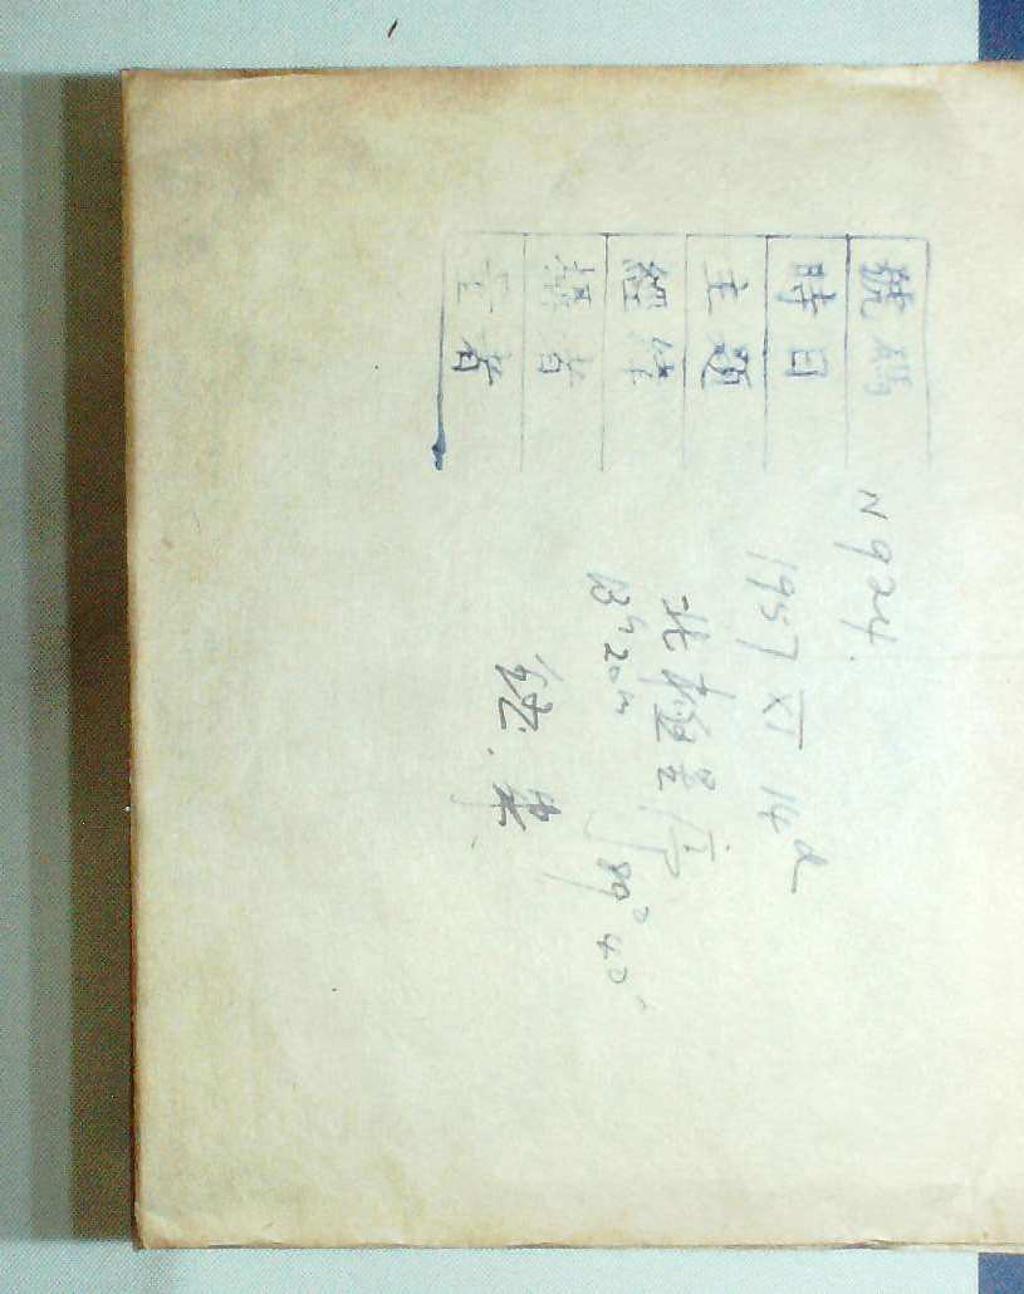 號碼 N 924.
時日 1957 XI 14d
主題 北極星序
經緯 13h 20m 89° 40'
攝者
者